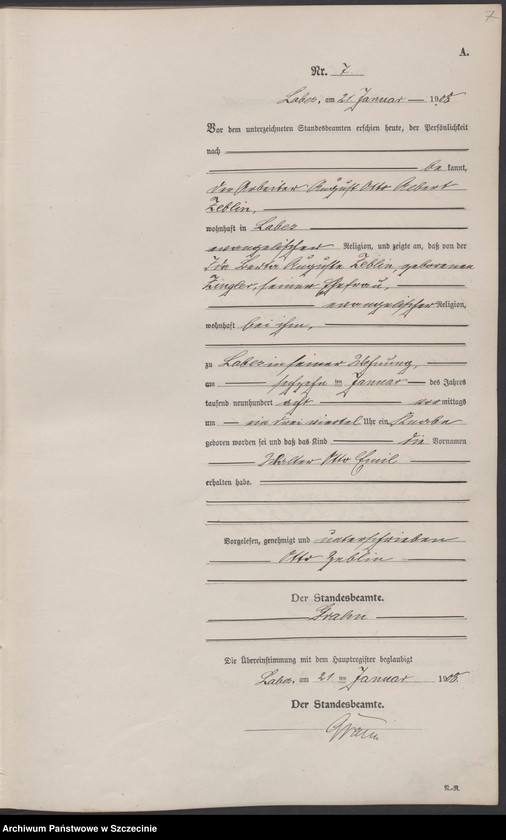 7
A.
Nr. 7
Labes, am 21 Januar 1908
Vor dem unterzeichneten Standesbeamten erschien heute, der Persönlichkeit
nach
be kannt,
der Arbeiter August Otto Albert
Zeblin,
wohnhaft in Labes
evangelischer Religion, und zeigte an, daß von der
Ida Berta Auguste Zeblin, geborenen
Ziegler, seiner Ehefrau,
evangelischer Religion,
wohnhaft bei ihm,
zu Labes in seiner Wohnung,
am sechzehn ten Januar des Jahres
tausend neunhundert acht vor mittags
um ein drei viertel Uhr ein Knabe
geboren worden sei und daß das Kind die Vornamen
Walter Otto Emil
erhalten habe.
Vorgelesen, genehmigt und unterschrieben
Otto Zeblin
Der Standesbeamte.
Die Übereinstimmung mit dem Hauptregister beglaubigt
Labes, am 21 ten Januar 1908.
Der Standesbeamte.
N.-R.
Archiwum Państwowe w Szczecinie